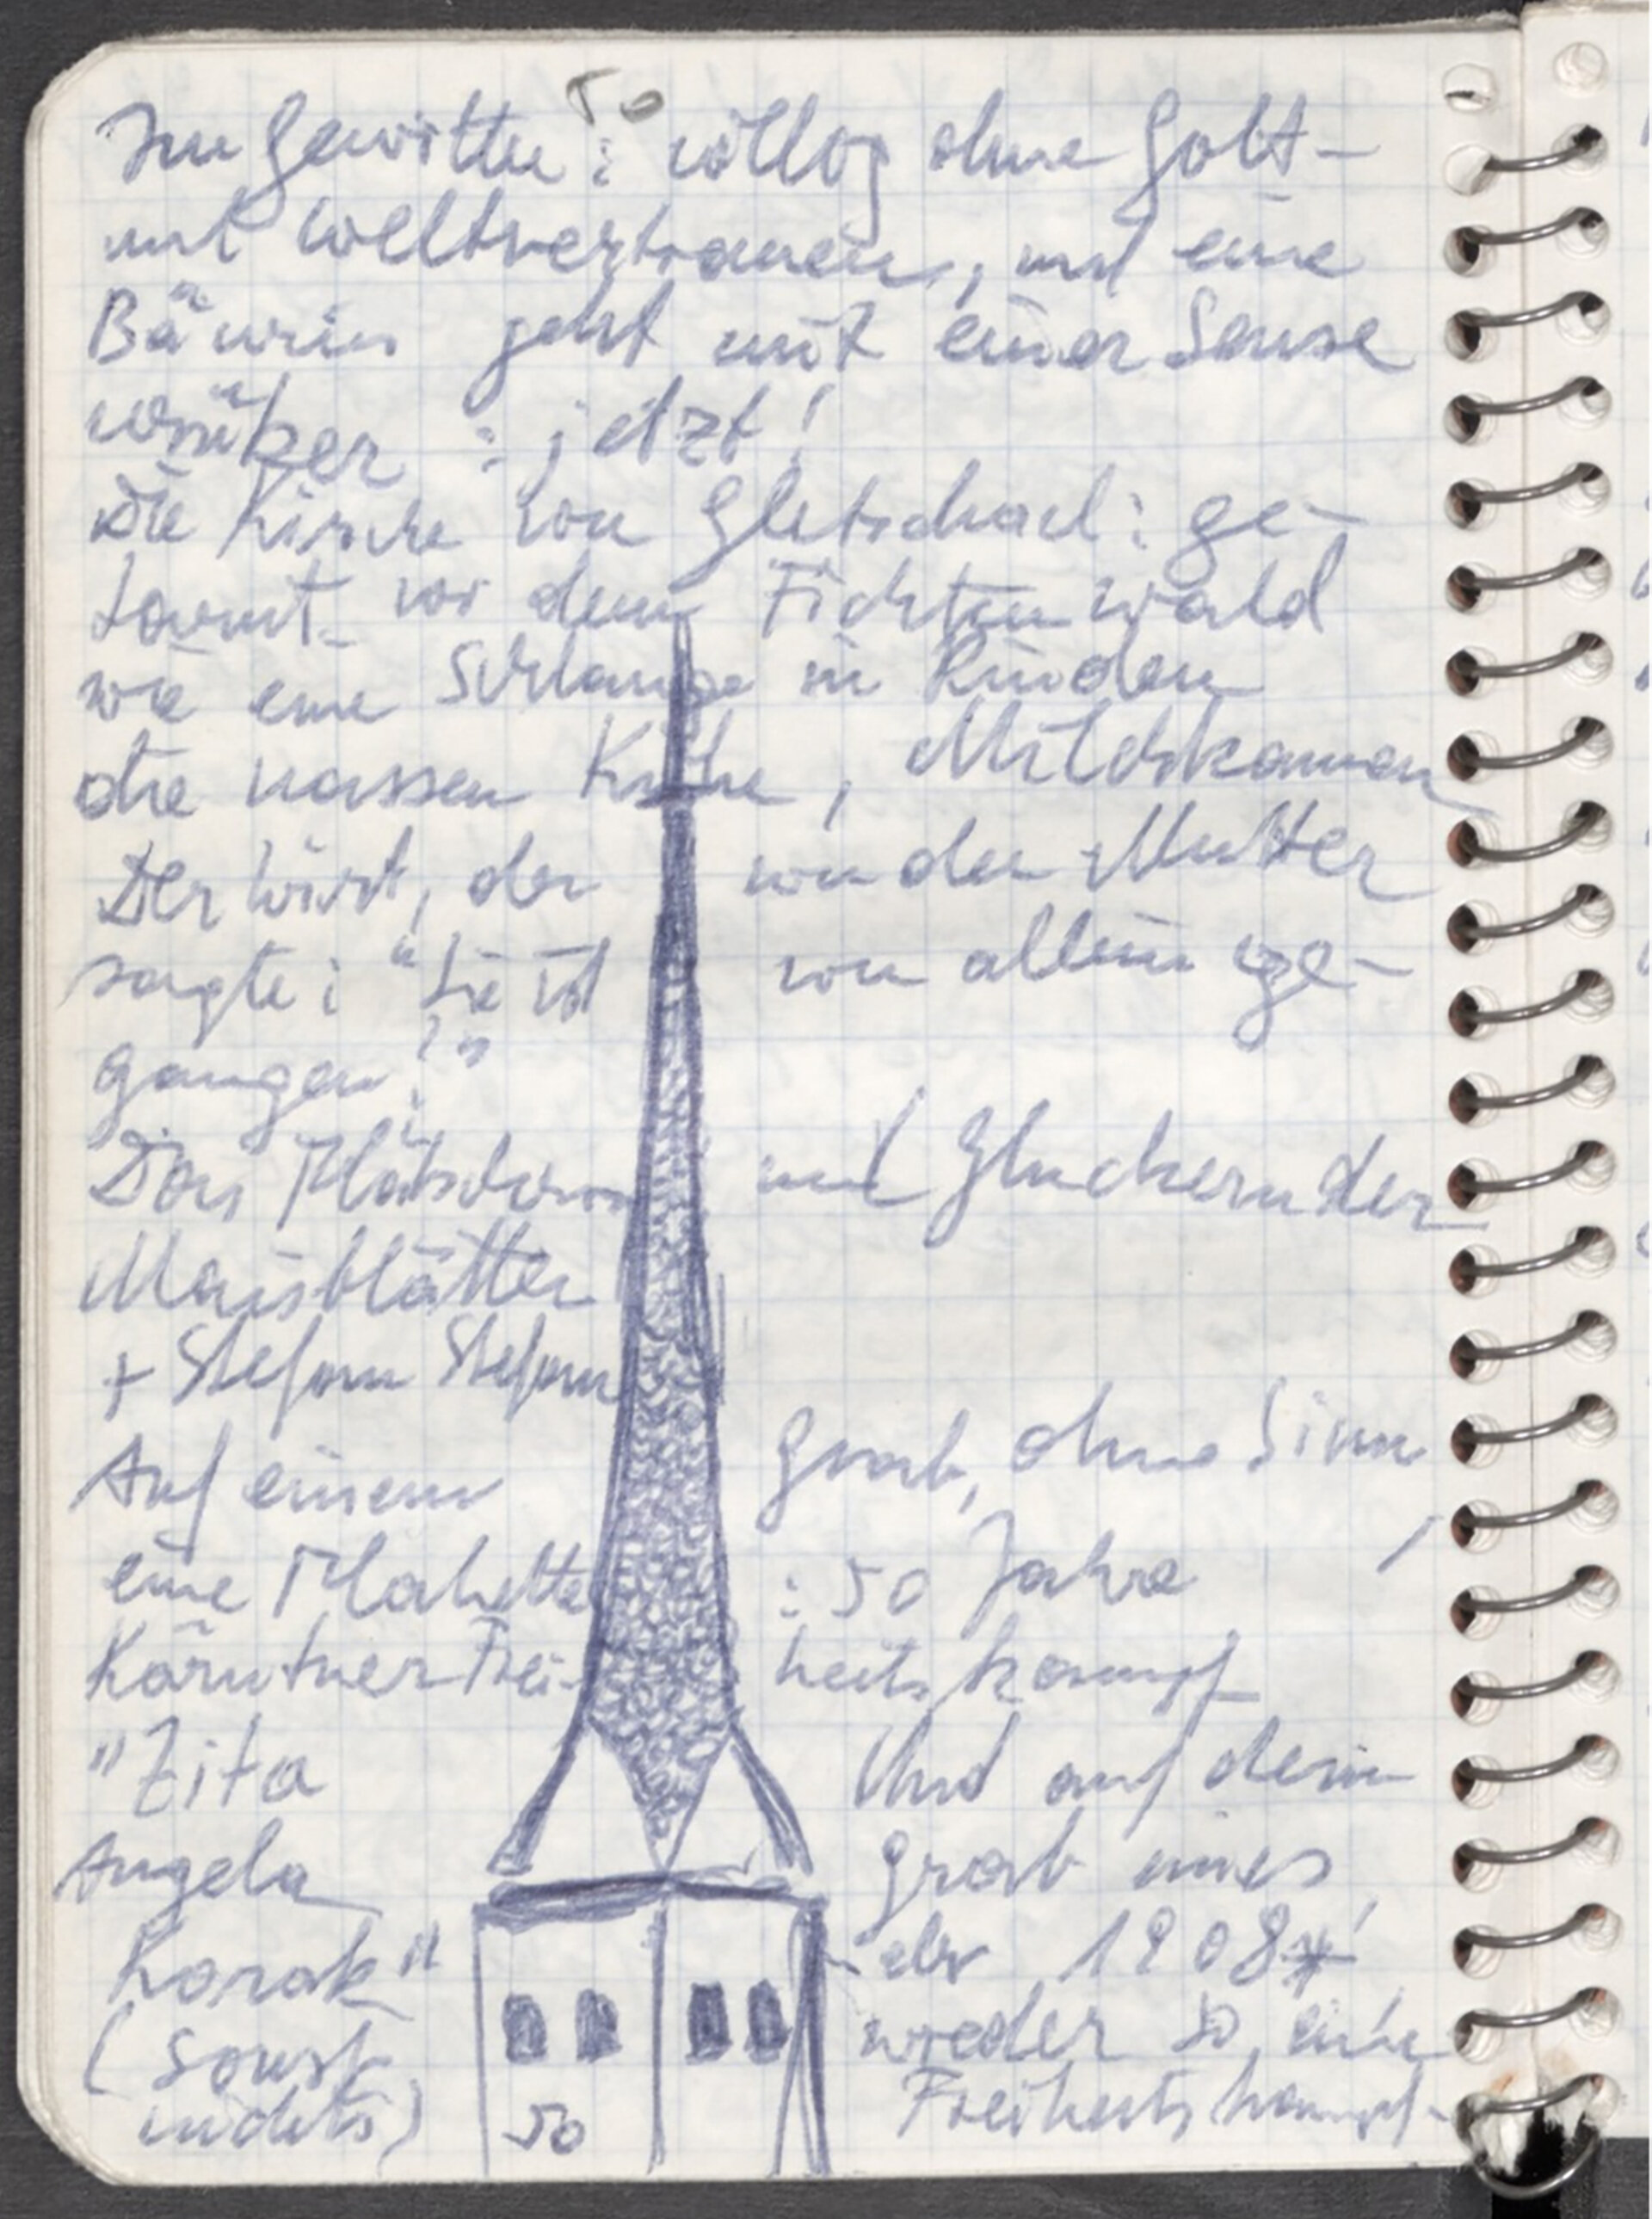 50
Im Gewitter: völlig ohne Gott-
und Weltvertrauen, und eine
Bäurin geht mit einer Sense
vorüber: jetzt!
Die Kirche von Gletschach: ge-
tarnt vor dem Fichtenwald
wie eine Schlange in Rinden
die nassen Kühe, Milchkannen
Der Wirt, der von der Mutter
sagte: "Sie ist von allein ge-
gangen!"
Das Plätschern und Gluckern der
Maisblätter
+ Stefan Stefan
Auf einem Grab, ohne Sinn,
eine Plakette: 50 Jahre
Kärntner Freiheitskampf
"Zita
Angela
Korak"
(sonst
nichts)
Und auf dem
Grab eines,
der 1908 *,
wieder so eine
Freiheitskampf-
50